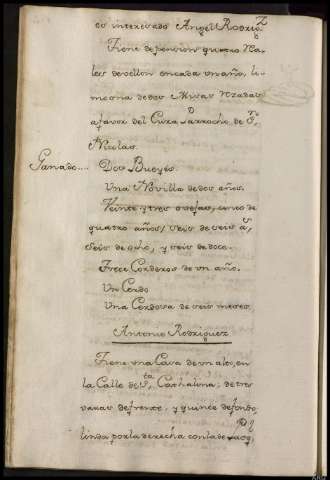 es interesado Angel Rodrig.z
Tiene de pension quatro Rea-
les de vellon encada un año, li-
mosna de dos Misas rezadas
a favor del Cura Parrocho de S.n
Nicolas.
Ganado.... Dos Bueyes
Una Novilla de dos años.
Veinte y tres ovejas, cinco de
quatro años, seis de seis a.s,
seis de ocho, y seis de doce.
Trece Corderos de un año.
Un Cerdo
Una Cerdosa de seis meses.
Antonio Rodriguez
Tiene una Casa de un alto, en
la Calle de S.ta Cathalina; de tres
varas de frente, y quince de fondo,
linda por la derecha con la de